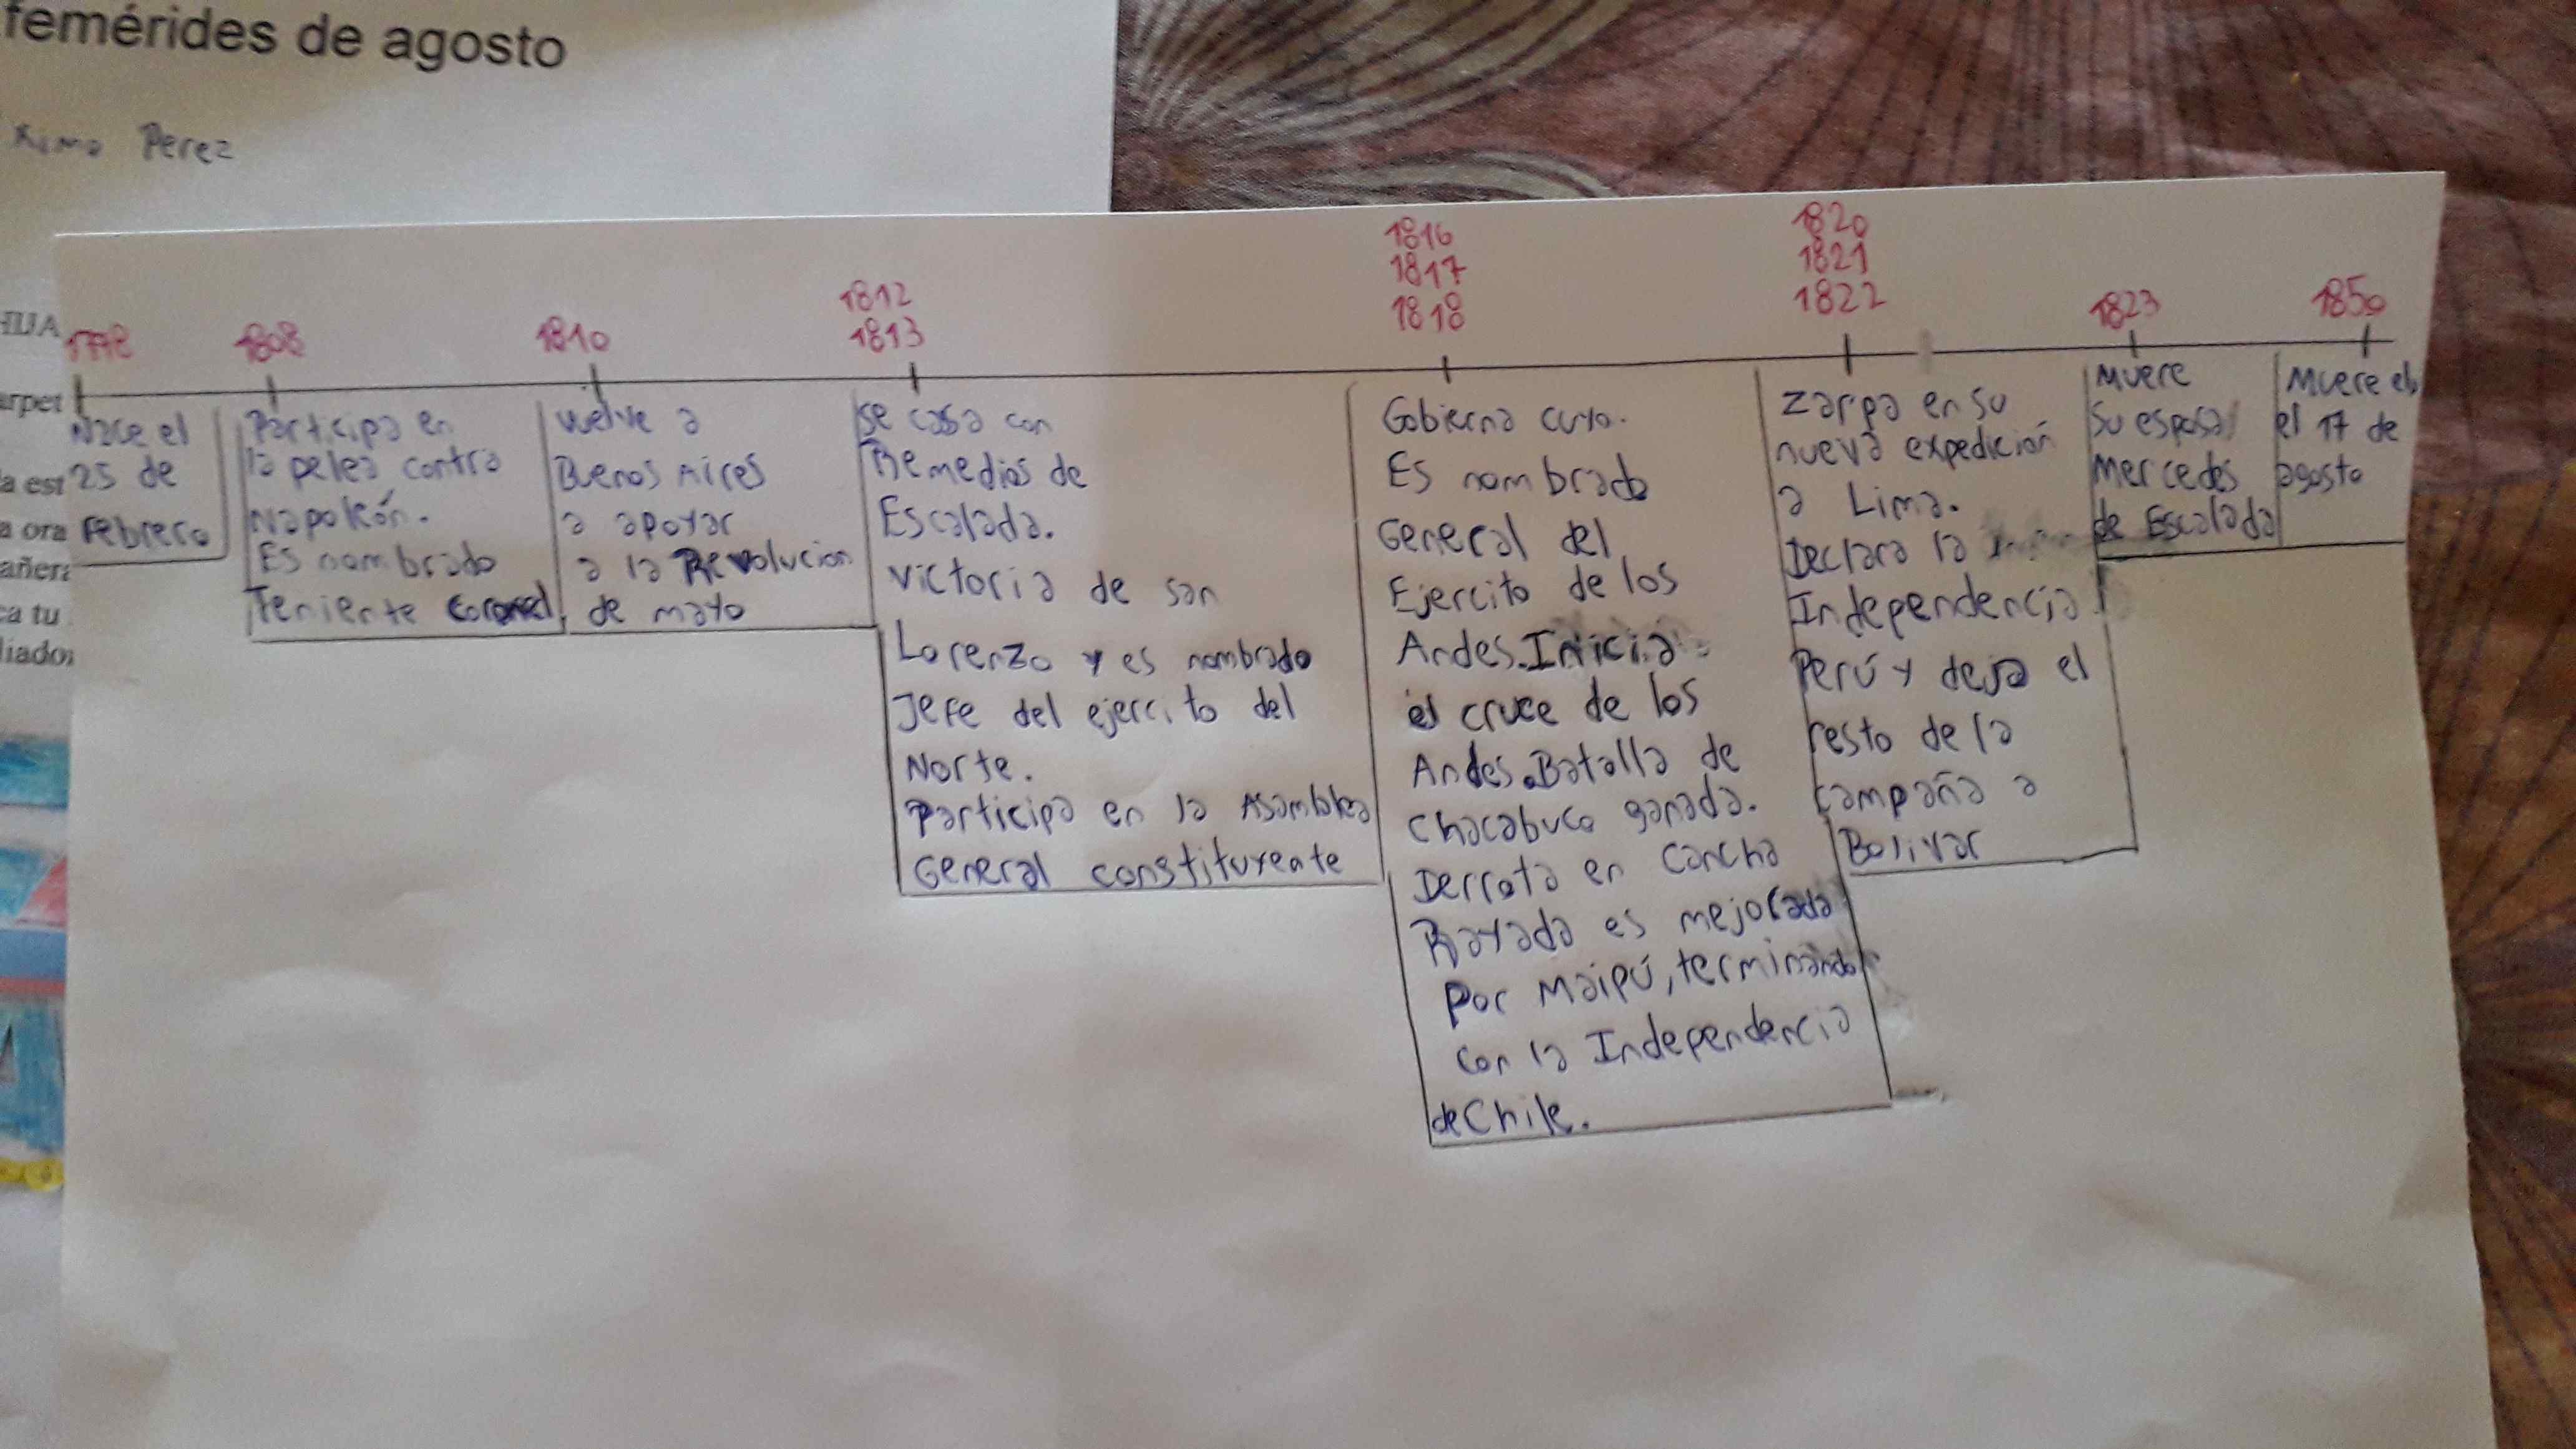 femérides de agosto
Perez
HIJA
arpet
a est
a ora
añera
ca tu
liados
1778
Nace el
25 de
Febrero
1808
Participa en
la pelea contra
Napoleón.
Es nombrado
Teniente coronel
1810
vuelve a
Buenos Aires
a apoyar
a la Revolucion
de mayo
1812
1813
se casa con
Remedios de
Escalada.
victoria de san
Lorenzo y es nombrado
Jefe del ejercito del
Norte.
Participa en la Asamblea
General constituyente
1816
1817
1818
Gobierna cuyo.
Es nombrado
General del
Ejercito de los
Andes. Inicia
el cruce de los
Andes. Batalla de
Chacabuco ganada.
Derrota en Cancha
Rayada es mejorada
Por Maipú, terminando
con la Independencia
de Chile.
1820
1821
1822
Zarpa en su
nueva expedición
a Lima.
Declara la
Independencia
Perú y deja el
resto de la
campaña a
Bolivar
1823
Muere
su esposa
Mercedes
de Escalada
1850
Muere el
el 17 de
agosto